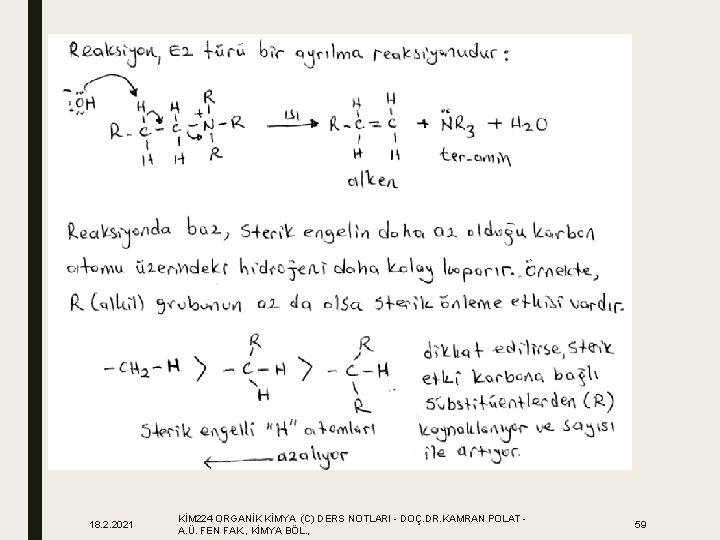 Reaksiyon, E2 türü bir ayrılma reaksiyonudur:
:ÖH H H R
R-C-C-N-R ısı R-C=C + NR3 + H2O
H H R H H ter-amin
alken
Reaksiyonda baz, Sterik engelin daha az olduğu karbon
atomu üzerindeki hidrojeni daha kolay koparır. Örnekte,
R (alkil) grubunun az da olsa sterik önleme etkisi vardır.
-CH2-H > R-C-H > R-C-H
H R
Sterik engelli "H" atomları
azalıyor
dikkat edilirse, sterik
etki karbona bağlı
sübstitüentlerden (R)
kaynaklanıyor ve sayısı
ile artıyor.
18.2.2021
KİM224 ORGANİK KİMYA (C) DERS NOTLARI - DOÇ.DR.KAMRAN POLAT -
A.Ü. FEN FAK., KİMYA BÖL.,
59